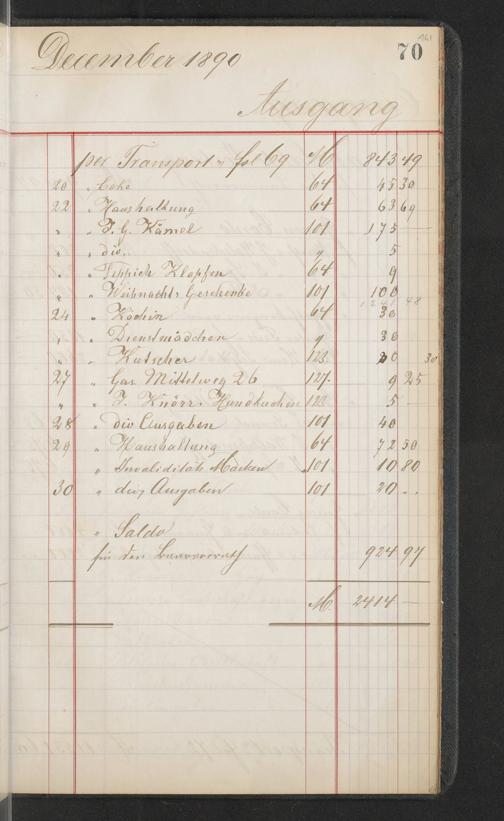 161
70
December 1890
Ausgang
per Transport v. fol 69 M 843 49
20 " Coke 64 45 30
22 " Haushaltung 64 63 69
" " F. G. Kämel 101 175 —
" " div. 9 5
" " Teppich Klopfen 64 9
" " Weihnachts Geschenke 101 100
24 " Köchin 64 30
" " Dienstmädchen 9 30
" " Kutscher 123 20 30
27 " Gas Mittelweg 26 127 9 25
" " F. Knörr. Hundkuchen 123 5 —
28 " div Ausgaben 101 40
29 " Haushaltung 64 72 50
" " Invalidität Marken 101 10 80
30 " div Ausgaben 101 20 ..
" Saldo
für den Baarvorrath 924 97
M. 2414 —